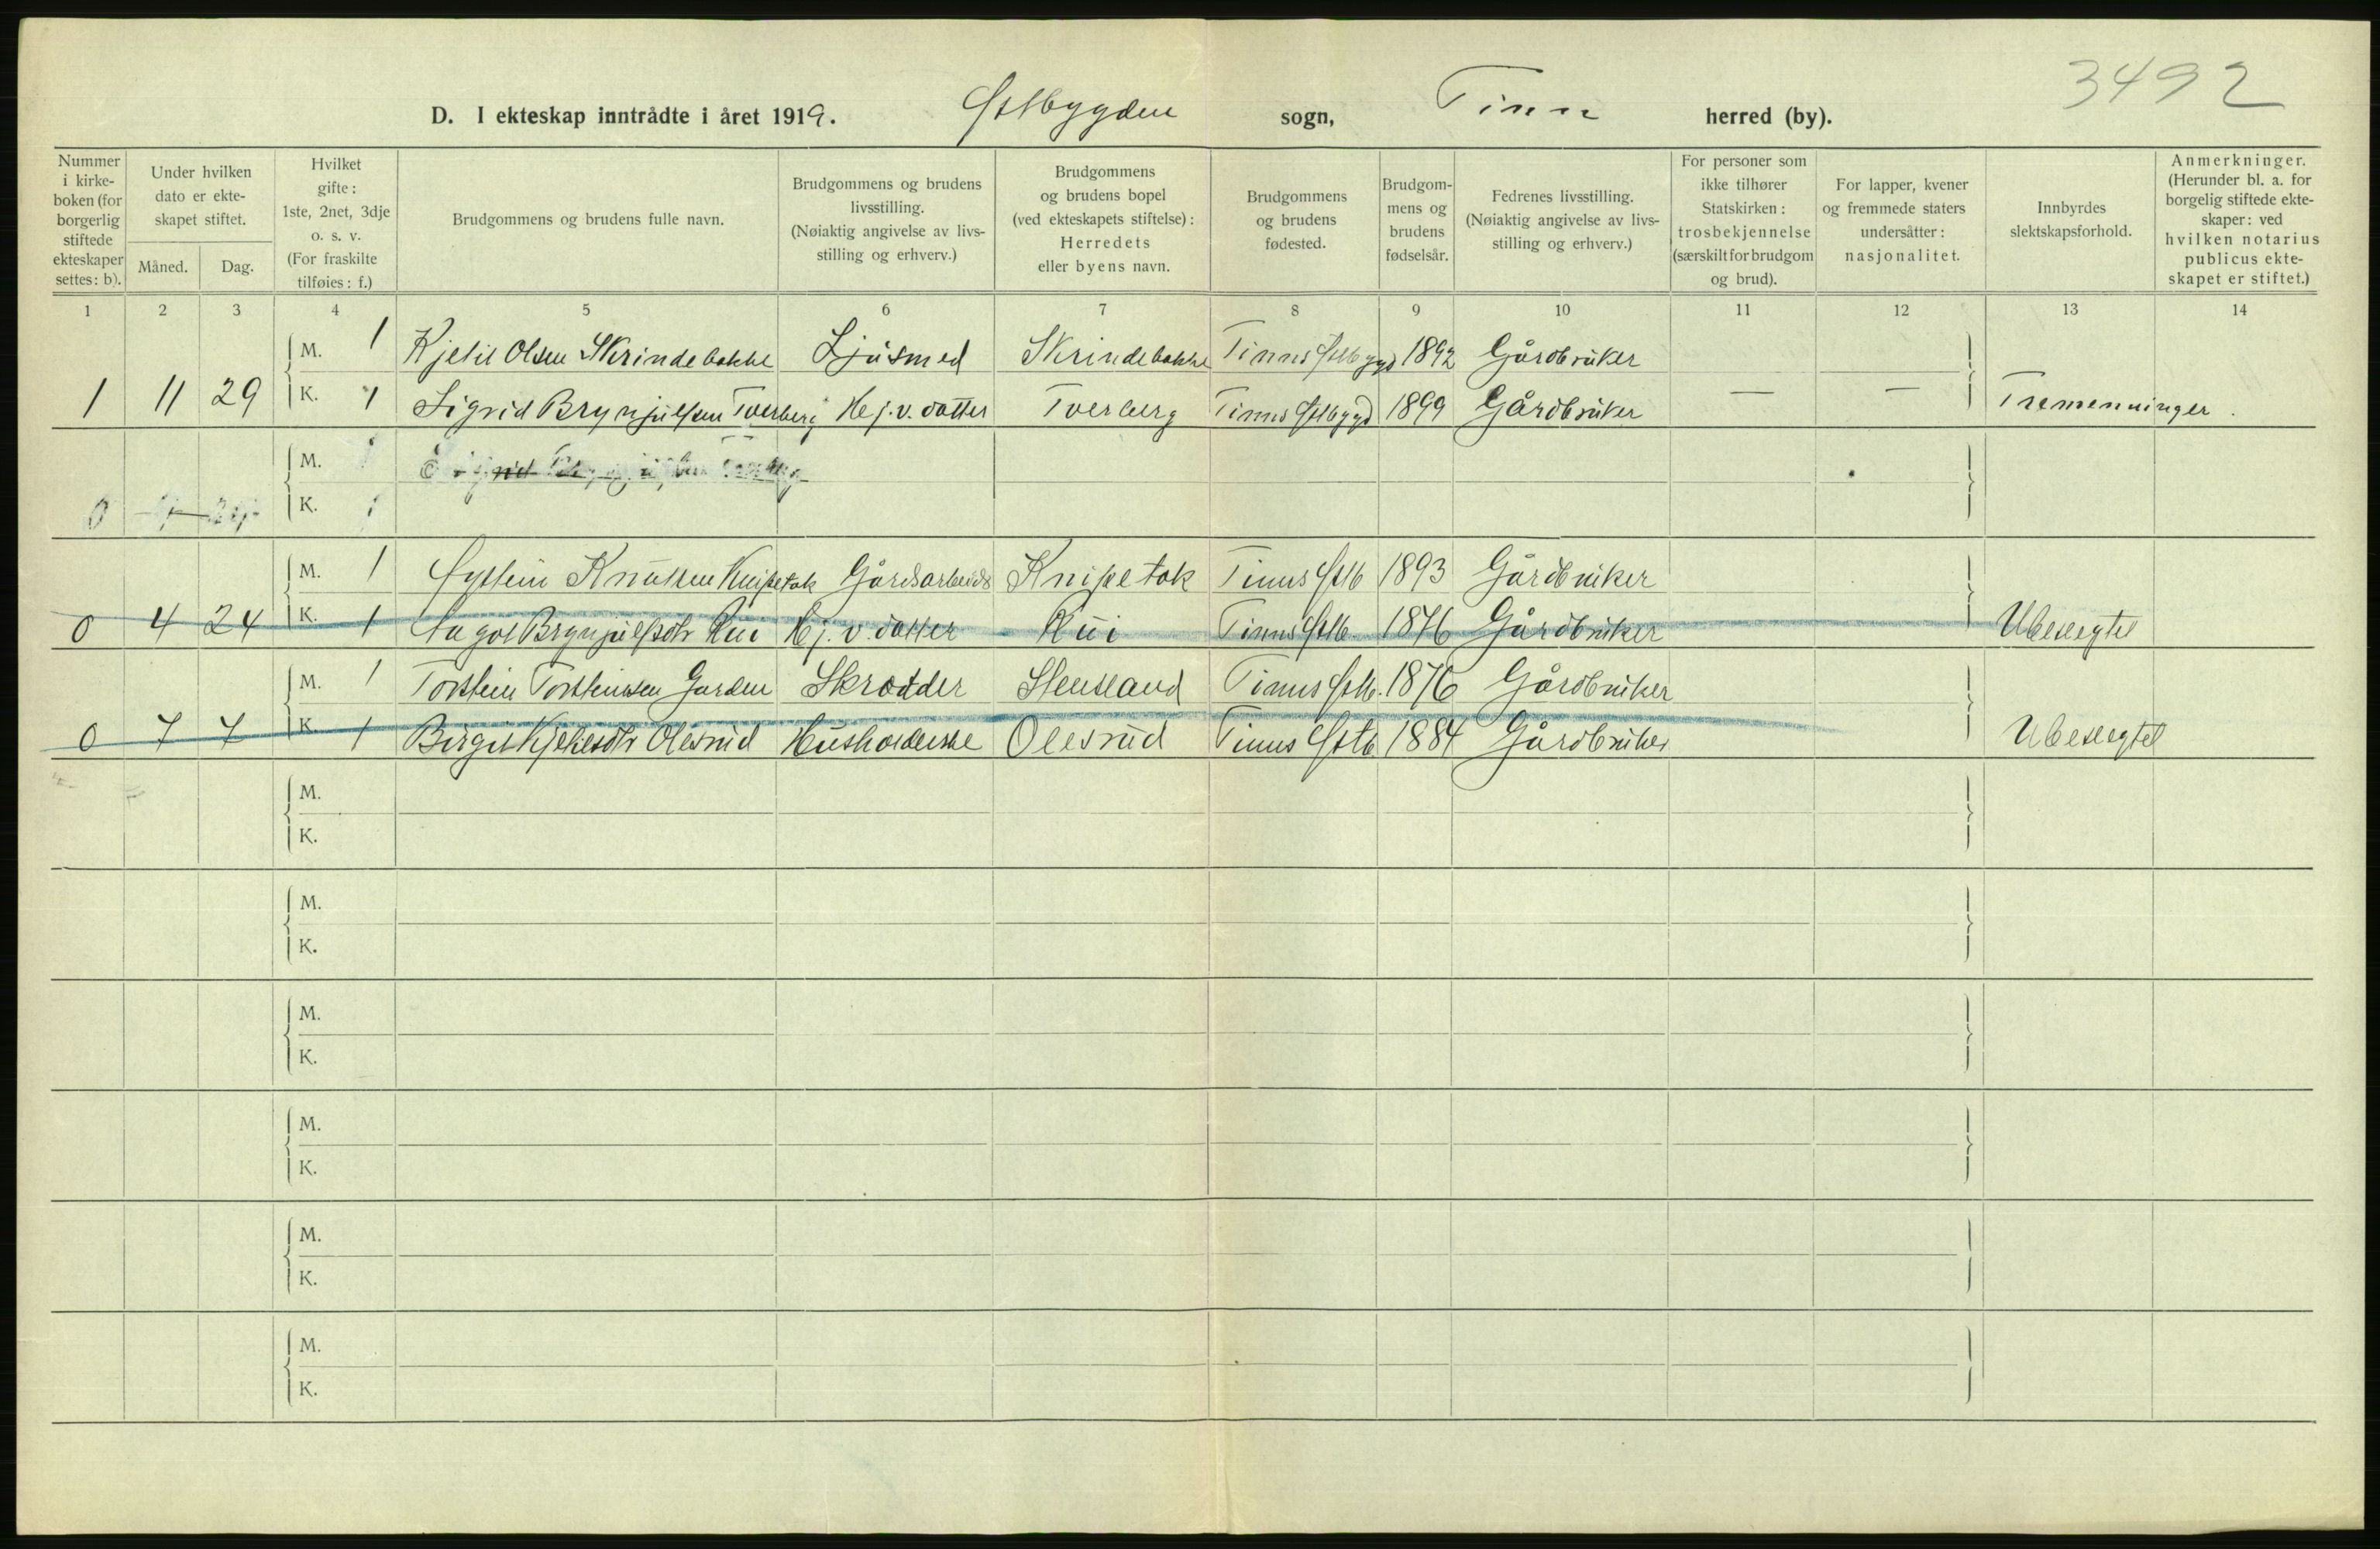 3492
D. I ekteskap inntrådte i året 1919. Østbygden sogn, Tinn herred (by).
Nummer i kirkeboken (for borgerlig stiftede ekteskaper settes: b).
Under hvilken dato er ekteskapet stiftet.
Måned. Dag.
Hvilket gifte: 1ste, 2net, 3dje o. s. v. (For fraskilte tilføies: f.)
Brudgommens og brudens fulle navn.
Brudgommens og brudens livsstilling. (Nøiaktig angivelse av livsstilling og erhverv.)
Brudgommens og brudens bopel (ved ekteskapets stiftelse): Herredets eller byens navn.
Brudgommens og brudens fødested.
Brudgommens og brudens fødselsår.
Fedrenes livsstilling. (Nøiaktig angivelse av livsstilling og erhverv.)
For personer som ikke tilhører Statskirken: trosbekjennelse (særskilt for brudgom og brud).
For lapper, kvener og fremmede staters undersåtter: nasjonalitet.
Innbyrdes slektskapsforhold.
Anmerkninger. (Herunder bl. a. for borgelig stiftede ekteskaper: ved hvilken notarius publicus ekteskapet er stiftet.)
1 2 3 4 5 6 7 8 9 10 11 12 13 14
M. 1 Kjetil Olsen Skrindebakke Ljåsmed Skrindebakke Tinns Østbygd 1892 Gårdbruker
1 11 29 K. 1 Sigrid Brynjulsen Tverberg Hej. v. datter Tverberg Tinns Østbygd 1899 Gårdbruker — — Tremenninger.
M.
0 K.
M. 1 Øystein Knutsen Knipetok Gårdsarbeid Knipetok Tinns Østb 1893 Gårdbruker
0 4 24 K. 1 Aagot Brynjulfsdtr Rui Hj. v. datter Rui Tinns Østb. 1876 Gårdbruker Ubeslegtet
M. 1 Torstein Torsteinsen Garden Skrædder Stensland Tinns Østb. 1876 Gårdbruker
0 7 7 K. 1 Birgit Kjetilsdtr Olesrud Husholderske Olesrud Tinns Østb 1884 Gårdbruker Ubeslegtet
M.
K.
M.
K.
M.
K.
M.
K.
M.
K.
M.
K.